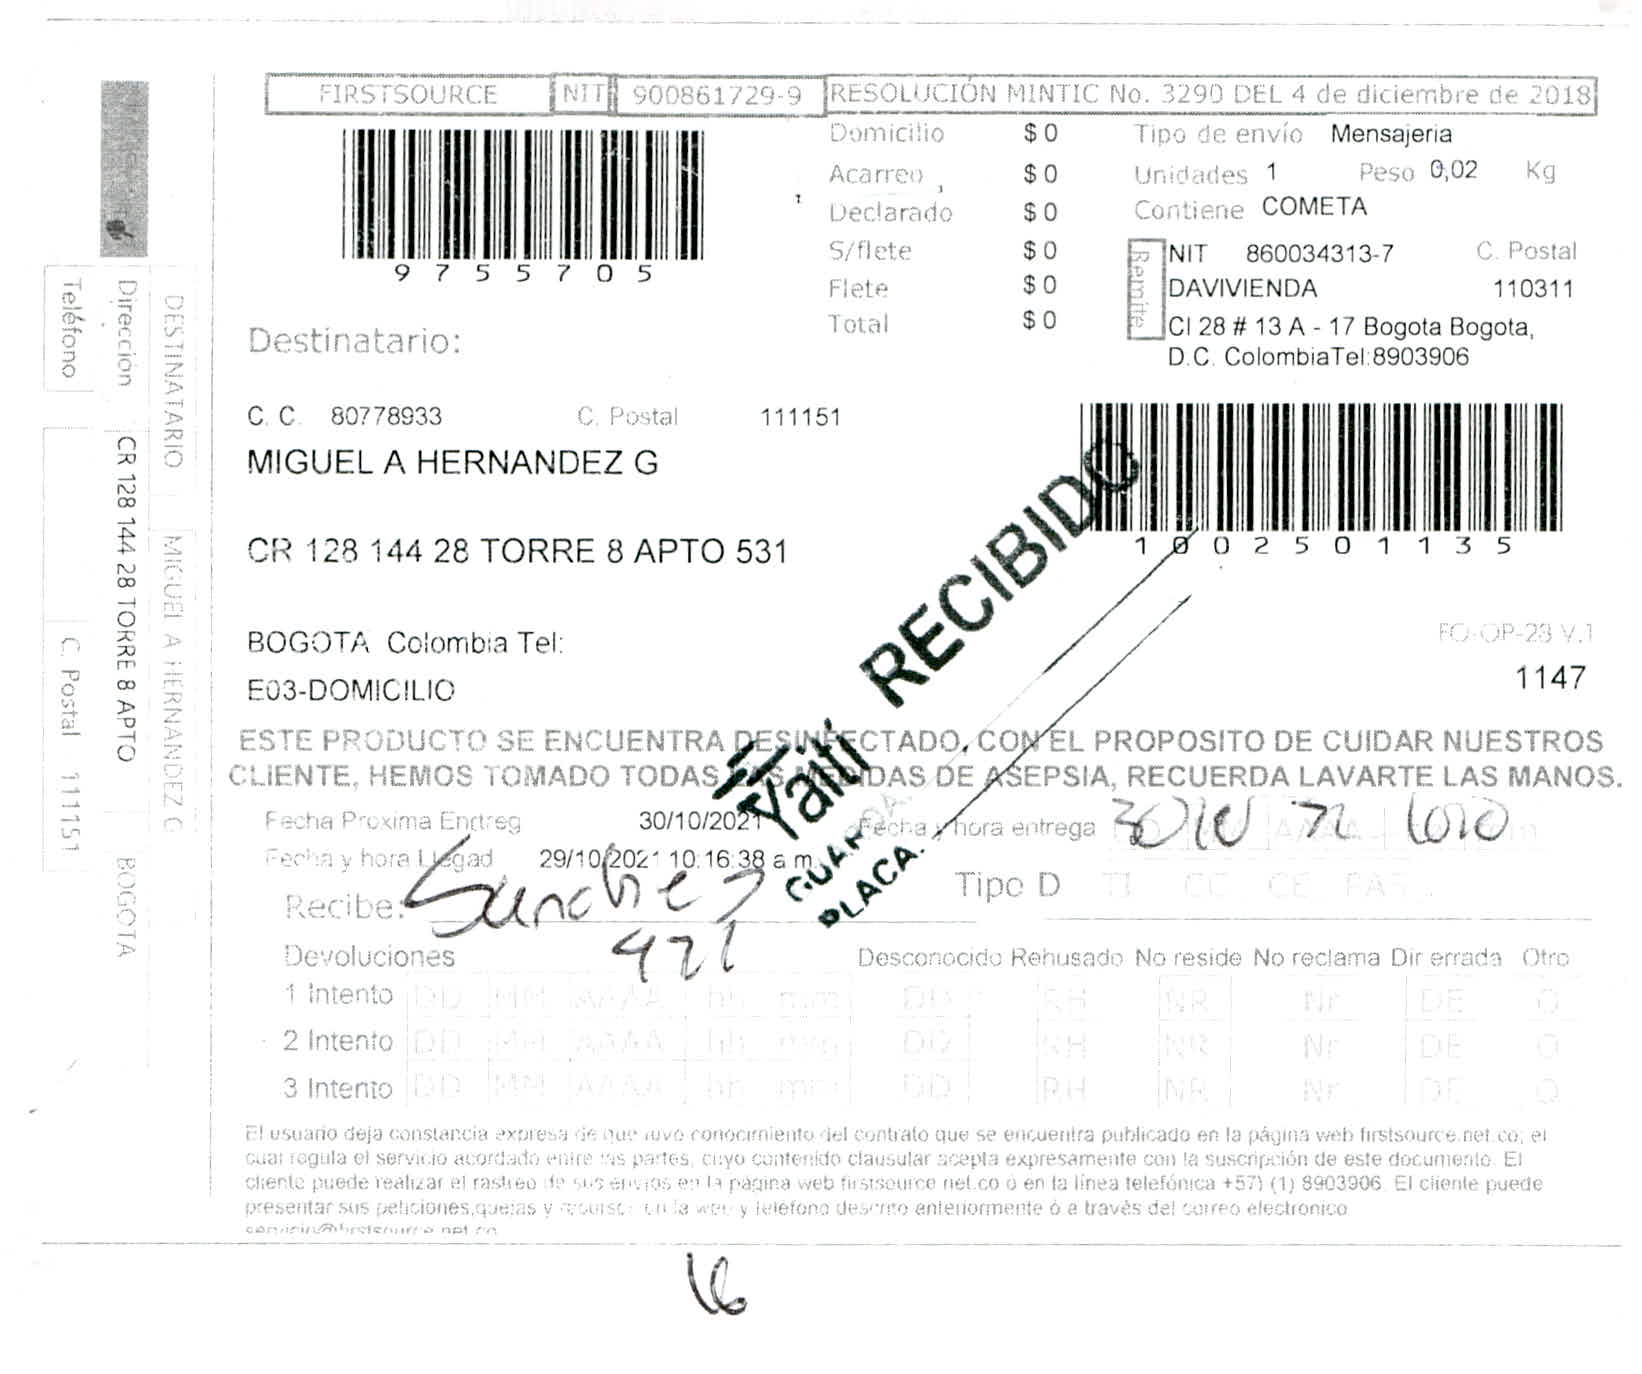 FIRSTSOURCE NIT 900861729-9 RESOLUCIÓN MINTIC No. 3290 DEL 4 de diciembre de 2018
Domicilio $ 0 Tipo de envío Mensajeria
Acarreo $ 0 Unidades 1 Peso 0,02 Kg
Declarado $ 0 Contiene COMETA
9755705
S/flete $ 0
Flete $ 0
Total $ 0
Remite
NIT 860034313-7 C. Postal
DAVIVIENDA 110311
Cl 28 # 13 A - 17 Bogota Bogota,
D.C. ColombiaTel:8903906
Destinatario:
C. C. 80778933 C. Postal 111151
MIGUEL A HERNANDEZ G
1002501135
CR 128 144 28 TORRE 8 APTO 531
BOGOTA Colombia Tel:
FO-OP-23 V.1
E03-DOMICILIO
1147
RECIBIDO
Yaití
GUARDA
PLACA.
ESTE PRODUCTO SE ENCUENTRA DESINFECTADO, CON EL PROPOSITO DE CUIDAR NUESTROS
CLIENTE, HEMOS TOMADO TODAS LAS MEDIDAS DE ASEPSIA, RECUERDA LAVARTE LAS MANOS.
Fecha Proxima Entreg 30/10/2021 Fecha y hora entrega
Fecha y hora Llegad 29/10/2021 10:16:38 a m
Tipo D TI CC CE PAS
Recibe: Sanchez
421
Devoluciones Desconocido Rehusado No reside No reclama Dir errada Otro
1 Intento DD MM AAAA hh mm DD RH NR Nr DE O
2 Intento DD MM AAAA hh mm DD RH NR Nr DE O
3 Intento DD MM AAAA hh mm DD RH NR Nr DE O
El usuario deja constancia expresa de que tuvo conocimiento del contrato que se encuentra publicado en la página web firstsource.net.co; el
cual regula el servicio acordado entre las partes, cuyo contenido clausular acepta expresamente con la suscripción de este documento. El
cliente puede realizar el rastreo de sus envios en la página web firstsource.net.co o en la línea telefónica +57) (1) 8903906. El cliente puede
presentar sus peticiones,quejas y recursos en la web y teléfono descrito anteriormente ó a través del correo electronico
servicio@firstsource.net.co
16
DESTINATARIO MIGUEL A HERNANDEZ G
Dirección CR 128 144 28 TORRE 8 APTO BOGOTA
Teléfono C. Postal 111151